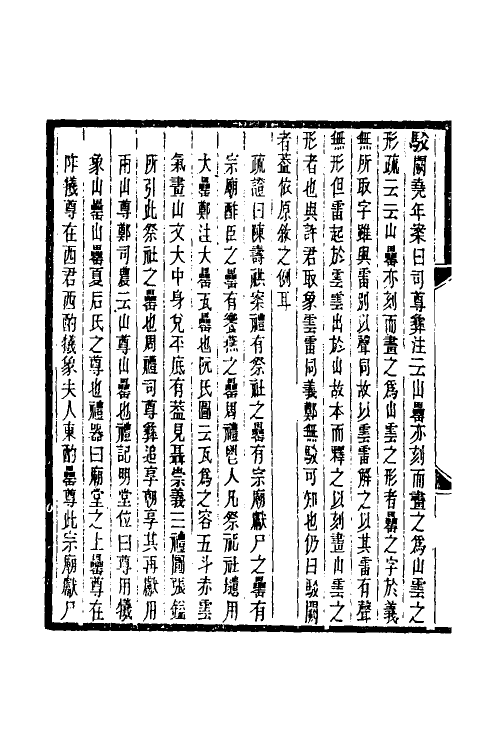 駁闕堯年案曰司尊彝注云山罍亦刻而畫之爲山雲之
形疏云云山罍亦刻而畫之爲山雲之形者罍之字於義
無所取字雖與雷別以聲同故以雲雷解之以其雷有聲
無形但雷起於雲雲出於山故本而釋之以刻畫山雲之
形者也與許君取象雲雷同義鄭無駁可知也仍曰駁闕
者葢依原敘之例耳
疏證曰陳壽祺案禮有祭社之罍有宗廟獻尸之罍有
宗廟酢臣之罍有饗燕之罍周禮鬯人凡祭祀社壝用
大罍鄭注大罍瓦罍也阮氏圖云瓦爲之容五斗赤雲
氣畫山文大中身兌平底有葢見聶崇義三禮圖張鎰
所引此祭社之罍也周禮司尊彝追享朝享其再獻用
兩山尊鄭司農云山尊山罍也禮記明堂位曰尊用犧
象山罍山罍夏后氏之尊也禮器曰廟堂之上罍尊在
阼犧尊在西君西酌犧象夫人東酌罍尊此宗廟獻尸